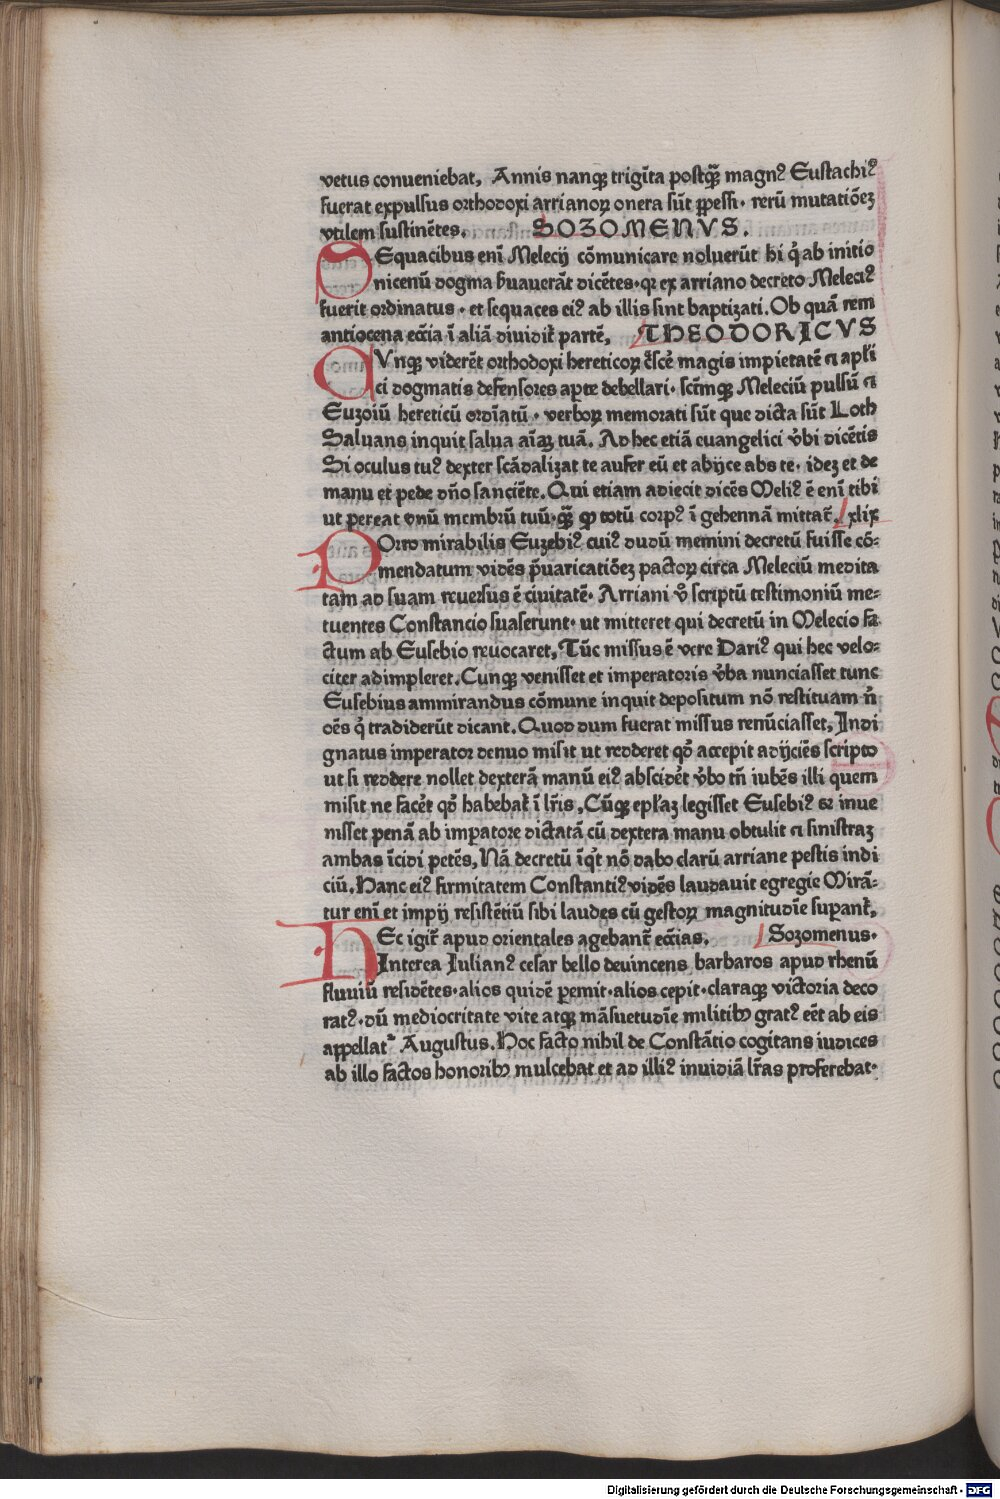 vetus conueniebat, Annis nanqꝫ trigīta postqꝫ̄ magnꝰ Eustachiꝰ
fuerat expulsus orthodoxi arrianoꝝ onera sūt ꝑpessi. rerū mutatiōeꝫ
vtilem sustinētes. SOZOMENVS.
SEquacibus eni̅ Melecij cōmunicare noluerūt hi q̇ ab initio
nicenū dogma ẜuauerāt dicētes. qꝛ ex arriano decreto Meleciꝰ
fuerit ordinatus. et sequaces eiꝰ ab illis sint baptizati. Ob quā rem
antiocena ecc̅ia ī aliā diuidit̃ partē, THEODORICVS
CVnqꝫ viderēt orthodoxi hereticoꝝ c̅sce̅ magis impietatē ⁊ apl̅i
ci dogmatis defensores aꝑte debellari. sct̅mqꝫ Meleciū pulsū ⁊
Euzoiū hereticū ordīatū. verboꝝ memorati sūt que dicta sūt Loth
Saluans inquit salua aīaꝫ tuā. Ad hec etiā euangelici v̉bi dicētis
Si oculus tuꝰ dexter scādalizat te aufer eū et abijce abs te. ideꝫ et de
manu et pede dn̄o sanciēte. Qui etiam adiecit dicēs Meliꝰ ē eni̅ tibi
ut pereat vnū membrū tuū. qꝫ̄ ꝙ totū corpꝰ ī gehennā mittat̃. xlix
POrro mirabilis Euzebiꝰ cuiꝰ dudū memini decretū fuisse cō-
mendatum vidēs p̄uaricatiōeꝫ pactoꝝ circa Meleciū medita
tam ad suam reuersus ē ciuitatē. Arriani v̉o scriptū testimoniū me-
tuentes Constancio suaserunt. ut mitteret qui decretū in Melecio fa-
ctum ab Eusebio reuocaret, Tūc missus ē vere Dariꝰ qui hec velo-
citer adimpleret. Cunqꝫ venisset et imperatoris v̉ba nunciasset tunc
Eusebius ammirandus cōmune inquit depositum nō restituam n̄
oēs q̇ tradiderūt dicant. Quod dum fuerat missus renūciasset, Indi
gnatus imperator denuo misit ut redderet qḋ accepit adijciēs scripto
ut si reddere nollet dexterā manū eiꝰ abscidēt v̉bo tn̄ iubēs illi quem
misit ne facēt qḋ habebat̃ ī lr̄is, Cūqꝫ epl̄aꝫ legisset Eusebiꝰ ⁊ inue
nisset penā ab impatore dictatā cū dextera manu obtulit ⁊ sinistraꝫ
ambas īcidi petēs, Nā decretū īqt̉ nō dabo clarū arriane pestis indi
ciū. Hanc eiꝰ firmitatem Constantiꝰ vidēs laudauit egregie Mirā-
tur eni̅ et impij resistētiū sibi laudes cū gestoꝝ magnitudīe suꝑant̃,
HEc igit̃ apud orientales agebant̃ ecc̅ias. Sozomenus.
Interea Iulianꝰ cesar bello deuincens barbaros apud rhenū
fluuiū residētes. alios quidē ꝑemit. alios cepit. claraqꝫ victoria deco
ratꝰ. dū mediocritate vite atqꝫ māsuetudīe militibꝫ gratꝰ eēt ab eis
appellatꝰ Augustus. Hoc facto nihil de Constātio cogitans iudices
ab illo factos honoribꝫ mulcebat et ad illiꝰ inuidiā lr̄as proferebat.
Digitalisierung gefördert durch die Deutsche Forschungsgemeinschaft - DFG